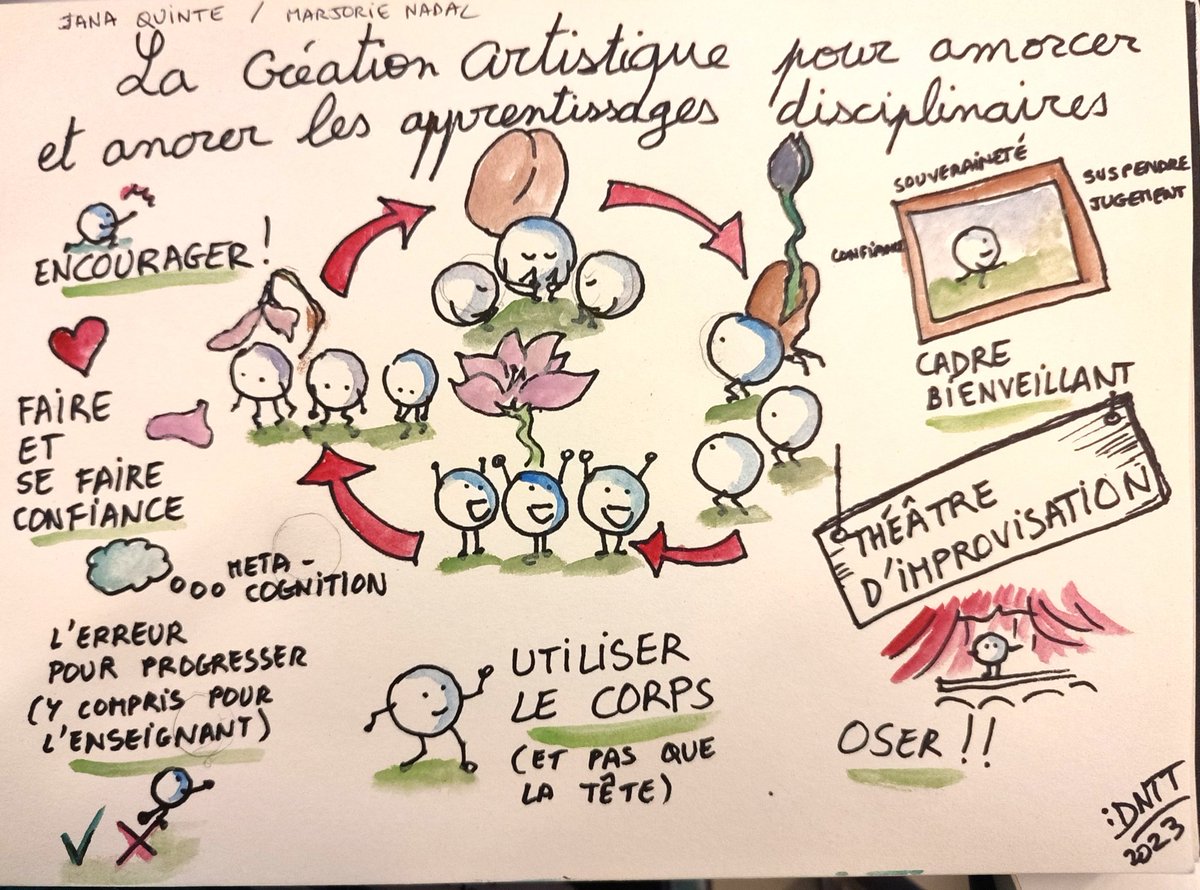 JANA QUINTE / MARJORIE NADAL
La Création Artistique pour amorcer
et ancrer les apprentissages disciplinaires
ENCOURAGER !
SOUVERAINETÉ
SUSPENDRE
JUGEMENT
CONFIANCE
CADRE
BIENVEILLANT
FAIRE
ET
SE FAIRE
CONFIANCE
THÉÂTRE
D'IMPROVISATION
META-
COGNITION
L'ERREUR
POUR PROGRESSER
(Y COMPRIS POUR
L'ENSEIGNANT)
UTILISER
LE CORPS
(ET PAS QUE
LA TÊTE)
OSER !!
iDNTT
2023